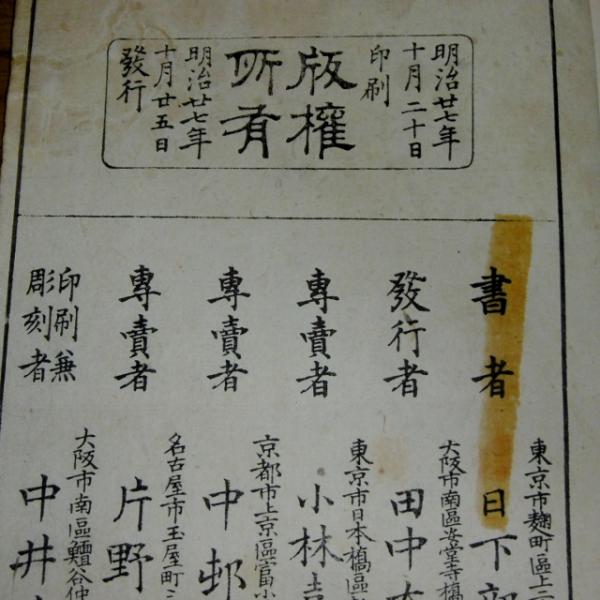 明治廿七年
十月二十日
印刷
版權
所有
明治廿七年
十月廿五日
發行
書者
東京市麹町區上二
日下部
發行者
大阪市南區安堂寺橋
田中
專賣者
東京市日本橋區
小林喜
專賣者
京都市上京區富小
中邨
專賣者
名古屋市玉屋町三
片野
印刷兼
彫刻者
大阪市南區鰻谷仲
中井